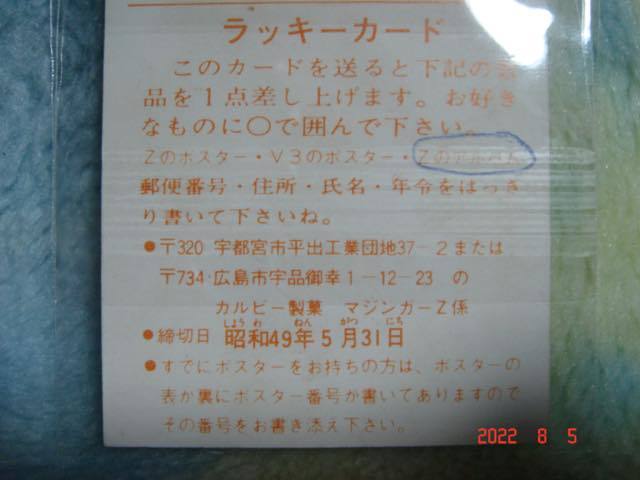 ラッキーカード
このカードを送ると下記の景
品を1点差し上げます。お好き
なものに○で囲んで下さい。
Zのポスター・V3のポスター・Zのアルバム
郵便番号・住所・氏名・年令をはっき
り書いて下さいね。
●〒320 宇都宮市平出工業団地37-2または
〒734 広島市宇品御幸1-12-23 の
カルビー製菓 マジンガーZ係
●締切日 昭和49年5月31日
しょうわ ねん がつ にち
●すでにポスターをお持ちの方は、ポスターの
表か裏にポスター番号が書いてありますので
その番号をお書き添え下さい。
2022 8 5